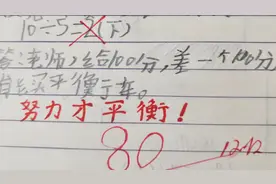 10÷5=2(下)
答:老师,给100分,差一个100分,
买平衡行车。
努力才平衡!
80